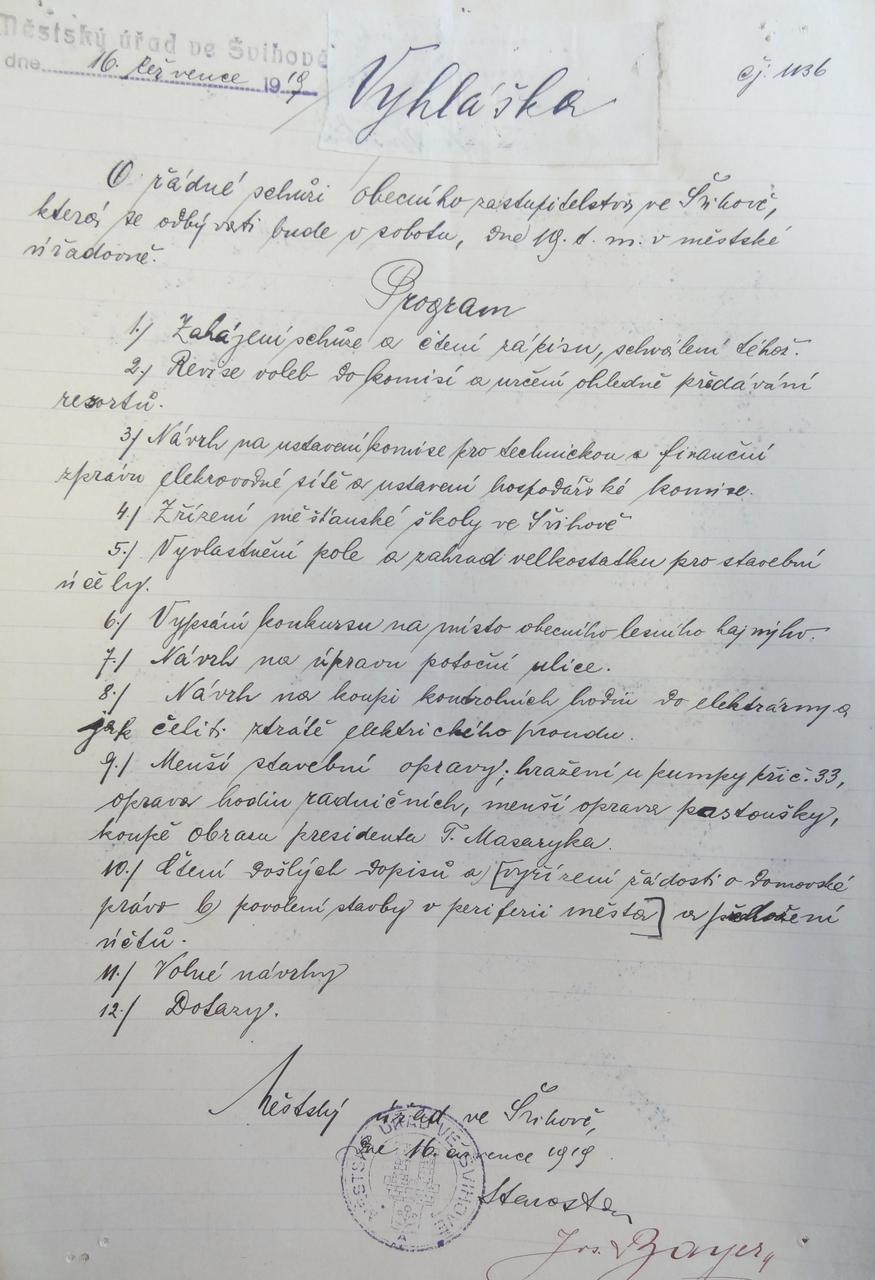 Městský úřad ve Švihově
dne 16. července 1919
Vyhláška
čj. 1136
O řádné schůzi obecního zastupitelstva ve Švihově,
která se odbývati bude v sobotu, dne 19. t. m. v městské
úřadovně.
Program
1./ Zahájení schůze a čtení zápisu, schválení téhož.
2./ Revise voleb do komisí a určení ohledně předávání
resortů.
3/ Návrh na ustavení komise pro technickou a finanční
zprávu elekrovodné sítě a ustavení hospodářské komise.
4./ Zřízení měšťanské školy ve Švihově
5./ Vyvlastnění pole a zahrad velkostatku pro stavební
účely.
6./ Vypsání konkursu na místo obecního lesního hajného.
7./ Návrh na úpravu potoční ulice.
8./ Návrh na koupi kontrolních hodin do elektrárny a
jak čeliti ztrátě elektrického proudu.
9./ Menší stavební opravy; hražení u pumpy při č. 33,
oprava hodin radničních, menší oprava pastoušky,
koupě obrazu presidenta T. Masaryka.
10./ Čtení došlých dopisů a [vyřízení žádosti o domovské
právo b) povolení stavby v periferii města] a předložení
účtů.
11./ Volné návrhy
12./ Dotazy.
Městský úřad ve Švihově,
dne 16. července 1919.
MĚSTSKÝ ÚŘAD VE ŠVIHOVĚ
Starosta
Jos. Bayer